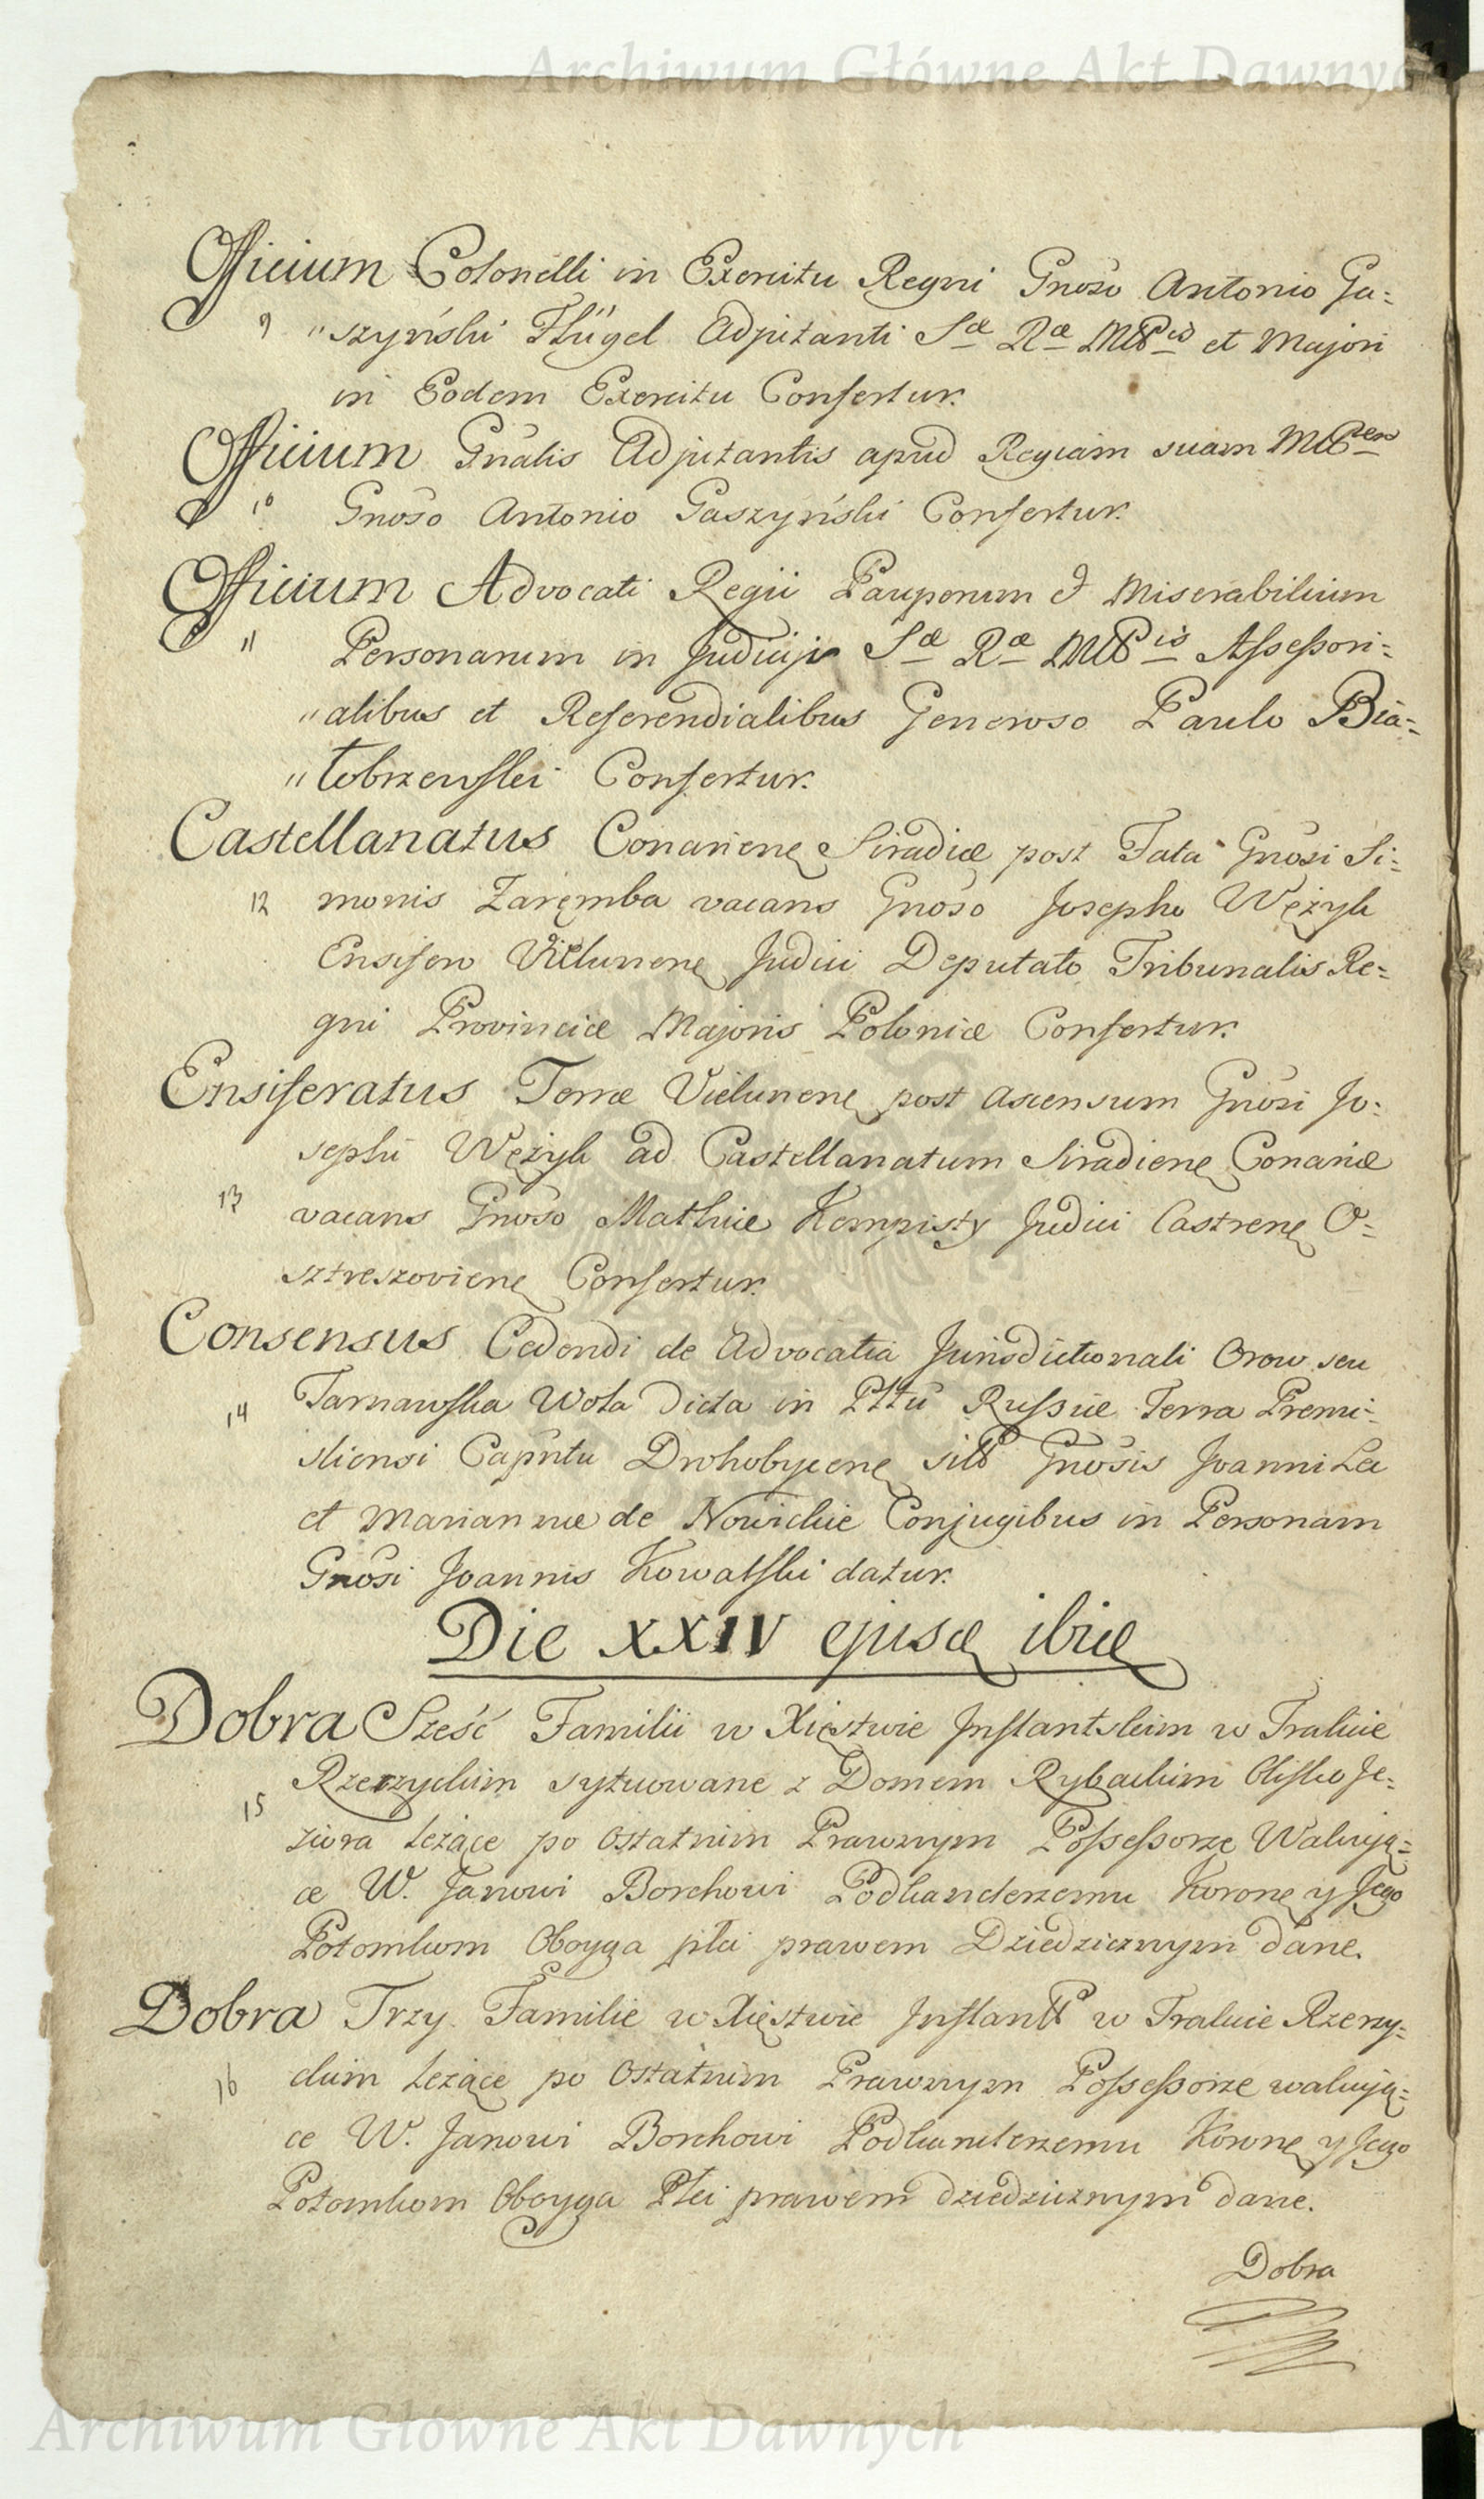 Archiwum Główne Akt Dawnych
Officium Colonelli in Exercitu Regni Gnoso Antonio Ga=
9 "szyński Flügel Adjutanti Sæ Ræ MttPis et Majori
in Eodem Exercitu Confertur.
Officium Gnalis Adjutantis apud Regiam suam MttPem
10 Gnoso Antonio Gaszyński Confertur.
Officium Advocati Regii Pauperum & Miserabilium
11 Personarum in Judicijs Sæ Ræ MttPis Assessori=
"alibus et Referendialibus Generoso Paulo Bia=
"łobrzewski Confertur.
Castellanatus Conariens Siradiæ post Fata Gnosi Si=
12 monis Zaręmba vacans Gnoso Josepho Wężyk
Ensifero Vielunens Judici Deputato Tribunalis Re=
gni Provinciæ Majoris Poloniæ Confertur.
Ensiferatus Terræ Vielunens post Ascensum Gnosi Jo=
sephi Wężyk ad Castellanatum Siradiens Conariæ
13 vacans Gnoso Mathiæ Kempisty Judici Castrens O=
sztreszoviens Confertur.
Consensus Cedendi de Advocatia Jurisdictionali Orow seu
14 Tarnawska Wola Dicta in Pttu Russiæ Terra Premi=
sliensi Capntu Drohobycens sitt Gnosis Joanni
et Mariannæ de Nowickie Conjugibus in Personam
Gnosi Joannis Kowalski datur.
Die XXIV ejusd ibid
Dobra Sześć Familii w Xięstwie Inflantskim w Trakcie
Rzerzyckim sytuowane z Domem Rybackim Blisko Je=
15 ziora leżące po Ostatnim Prawnym Possessorze Wakują=
ce W. Janowi Borchowi Podkanclerzemu Koronę y Jego
Potomkom Oboyga płci prawem Dziedzicznym dane.
Dobra Trzy Familie w Xięstwie Inflantt w Trakcie Rzerzy=
16 ckim leżące po Ostatnim Prawnym Possessorze wakują=
ce W. Janowi Borchowi Podkanclerzemu Koronę y Jego
Potomkom Oboyga Płci prawem dziedzicznym dane.
Dobra
Archiwum Główne Akt Dawnych